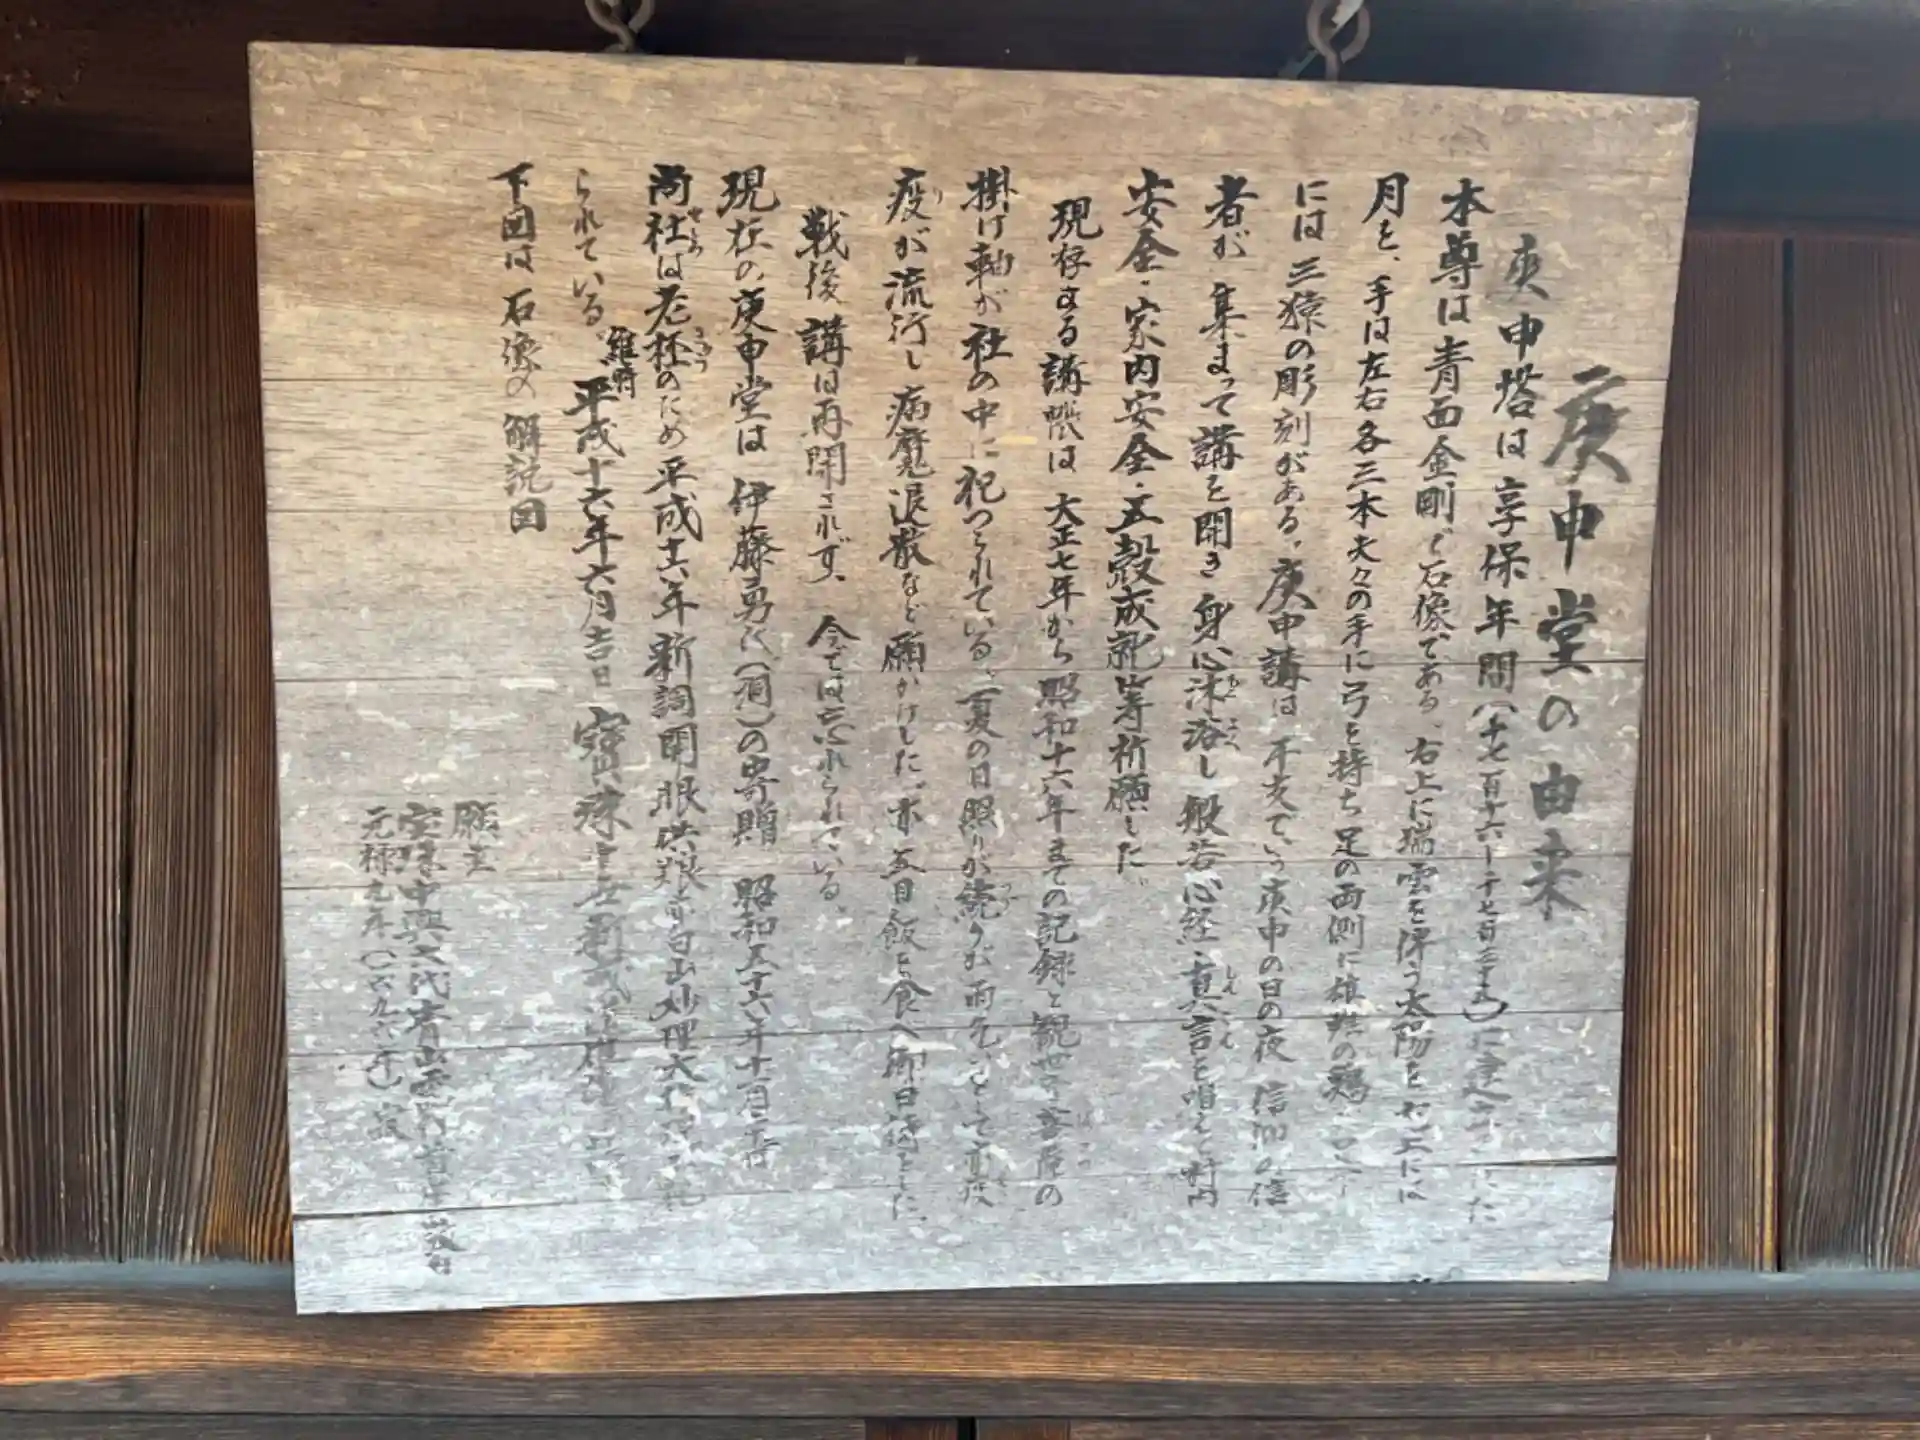 庚申堂の由来
庚申塔は享保年間(千七百十六ー千七百三十五)に建
本尊は青面金剛で石像である、右上に瑞雲を漂う太陽を左上には
月を、手は左右各三本夫々の手に弓を持ち足の両側に雄雌の鶏
には三猿の彫刻がある、庚申講は 庚申の日の夜 信仰の信
者が集まって講を開き身心沐浴し般若心経・真言を唱えて村内
安全・家内安全・五穀成就等祈願した
現存する講帳は大正七年から昭和十六年までの記録と観世音菩薩の
掛け軸が社の中に祀つられている、夏の日照りが続きが雨乞いをして
疫が流行し病魔退散など願かけした、亦五目飯を食べ御日待をした、
戦後講は再開されず、今では忘れられている、
現在の庚申堂は伊藤勇氏(洞)の寄贈 昭和五十六年十一月
尚社は老朽のため平成十六年新調開眼供 白山妙理大
られている、維時
平成十六年六月吉日 寶珠
下図は石像の解説図
願主
宝珠中興 代青山
元禄九年(一六九六年)